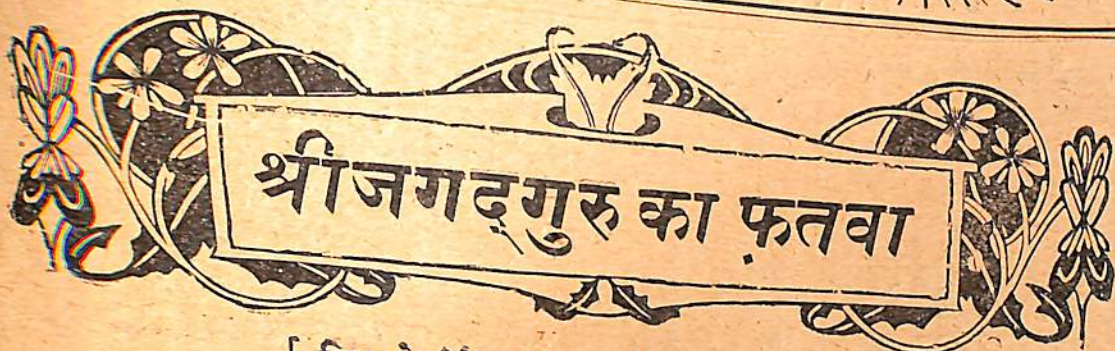 श्रीजगद्गुरु का फ़तवा